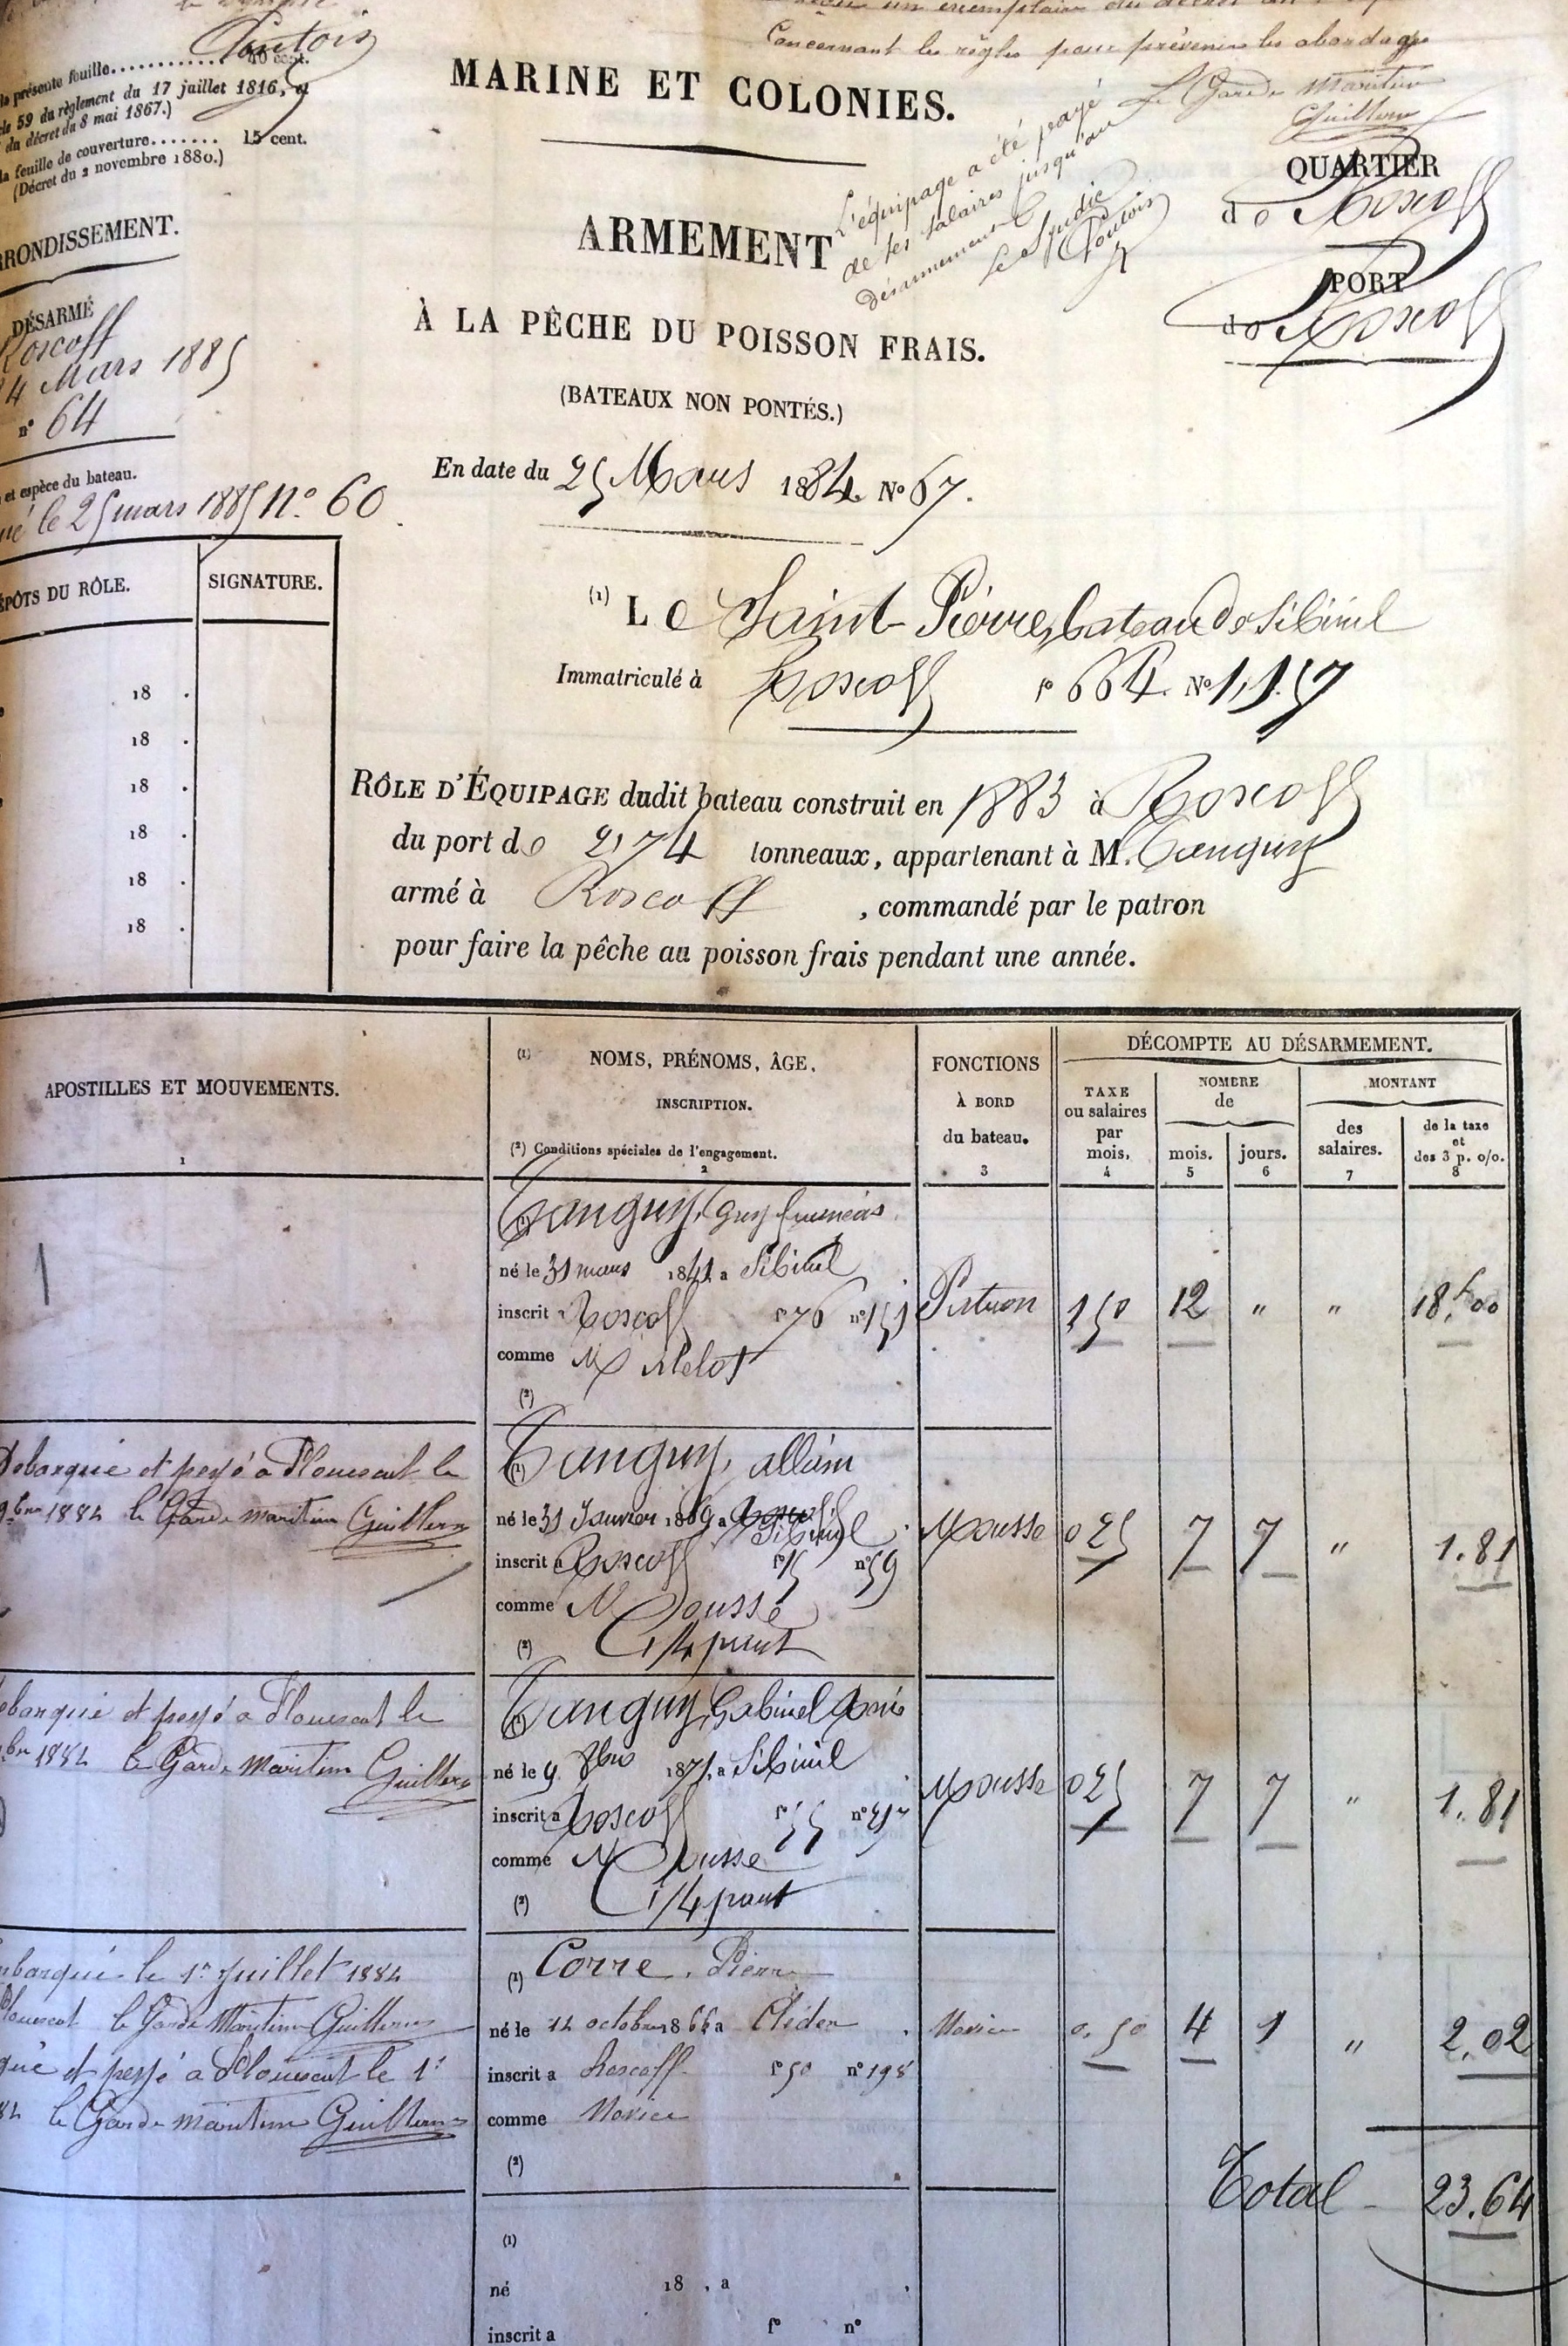 Concernant les règles pour prévenir les abordages
Le Garde Maritime
Guillerm
Pontois
la présente feuille............ 40 cent.
59 du règlement du 17 juillet 1816, et
du décret du 8 mai 1867.)
la feuille de couverture....... 15 cent.
(Décret du 2 novembre 1880.)
MARINE ET COLONIES.
L'équipage a été payé
de ses salaires jusqu'au
désarmement
Le Syndic
Pontois
QUARTIER
de Roscoff
PORT
de Roscoff
RRONDISSEMENT.
DÉSARMÉ
Roscoff
4 Mars 1885
n° 64
et espèce du bateau.
le 25 mars 1885 N° 60
ARMEMENT
À LA PÊCHE DU POISSON FRAIS.
(BATEAUX NON PONTÉS.)
En date du 25 Mars 1884. N° 67.
ÉPÔTS DU RÔLE. SIGNATURE.
18 .
18 .
18 .
18 .
18 .
18 .
(1) Le Saint Pierre, bateau de Sibiril
Immatriculé à Roscoff f° 664. N° 1,157
RÔLE D'ÉQUIPAGE dudit bateau construit en 1883 à Roscoff
du port de 2,74 tonneaux, appartenant à M. Tanguy
armé à Roscoff , commandé par le patron
pour faire la pêche au poisson frais pendant une année.
APOSTILLES ET MOUVEMENTS.
1
(1) NOMS, PRÉNOMS, ÂGE,
INSCRIPTION.
(2) Conditions spéciales de l'engagement.
2
FONCTIONS
À BORD
du bateau.
3
DÉCOMPTE AU DÉSARMEMENT.
TAXE
ou salaires
par
mois,
4
NOMBRE
de
mois.
5
jours.
6
MONTANT
des
salaires.
7
de la taxe
et
des 3 p. o/o.
8
1
(1) Tanguy, Guy François
né le 31 mars 1841 a Sibiril
inscrit a Roscoff f° 76 n° 151
comme Matelot
(2)
Patron 1 50 12 " " 18.f00
Débarqué et payé à Plouescat le
9bre 1884 le Garde maritime Guillerm
(1) Tanguy, allain
né le 31 Janvier 1869 a Sibiril
inscrit a Roscoff f° 15 n° 59
comme Mousse
(2) 1/4 part
Mousse 0 25 7 7 " 1.81
ébarqué et payé à Plouescat le
bre 1884 le Garde maritime Guillerm
(1) Tanguy, Gabriel Marie
né le 9 8bre 1871 a Sibiril
inscrit a Roscoff f° 55 n°
comme Mousse
(2) 1/4 part
Mousse 0 25 7 7 " 1.81
mbarqué le 1er juillet 1884
Plouescat le Garde Maritime Guillerm
qué et payé à Plouescat le 1er
84 le Garde maritime Guillerm
(1) Corre, Pierre
né le 14 octobre 1866 a Cléder
inscrit a Roscoff f° 50 n° 198
comme Novice
(2)
Novice 0.50 4 1 " 2.02
Total 23.64
(1)
né 18 , a
inscrit a f° n°